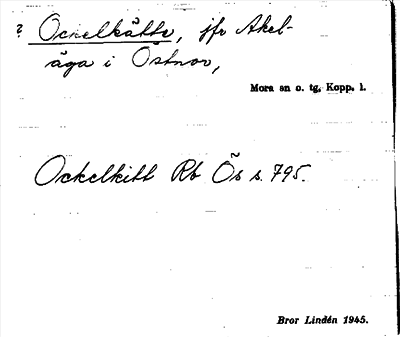 ? Ockelkätte, jfr Akel-
äga i Östnor,
Mora sn o. tg, Kopp. l.
Ockelkitt Rb Ös s. 795.
Bror Lindén 1945.